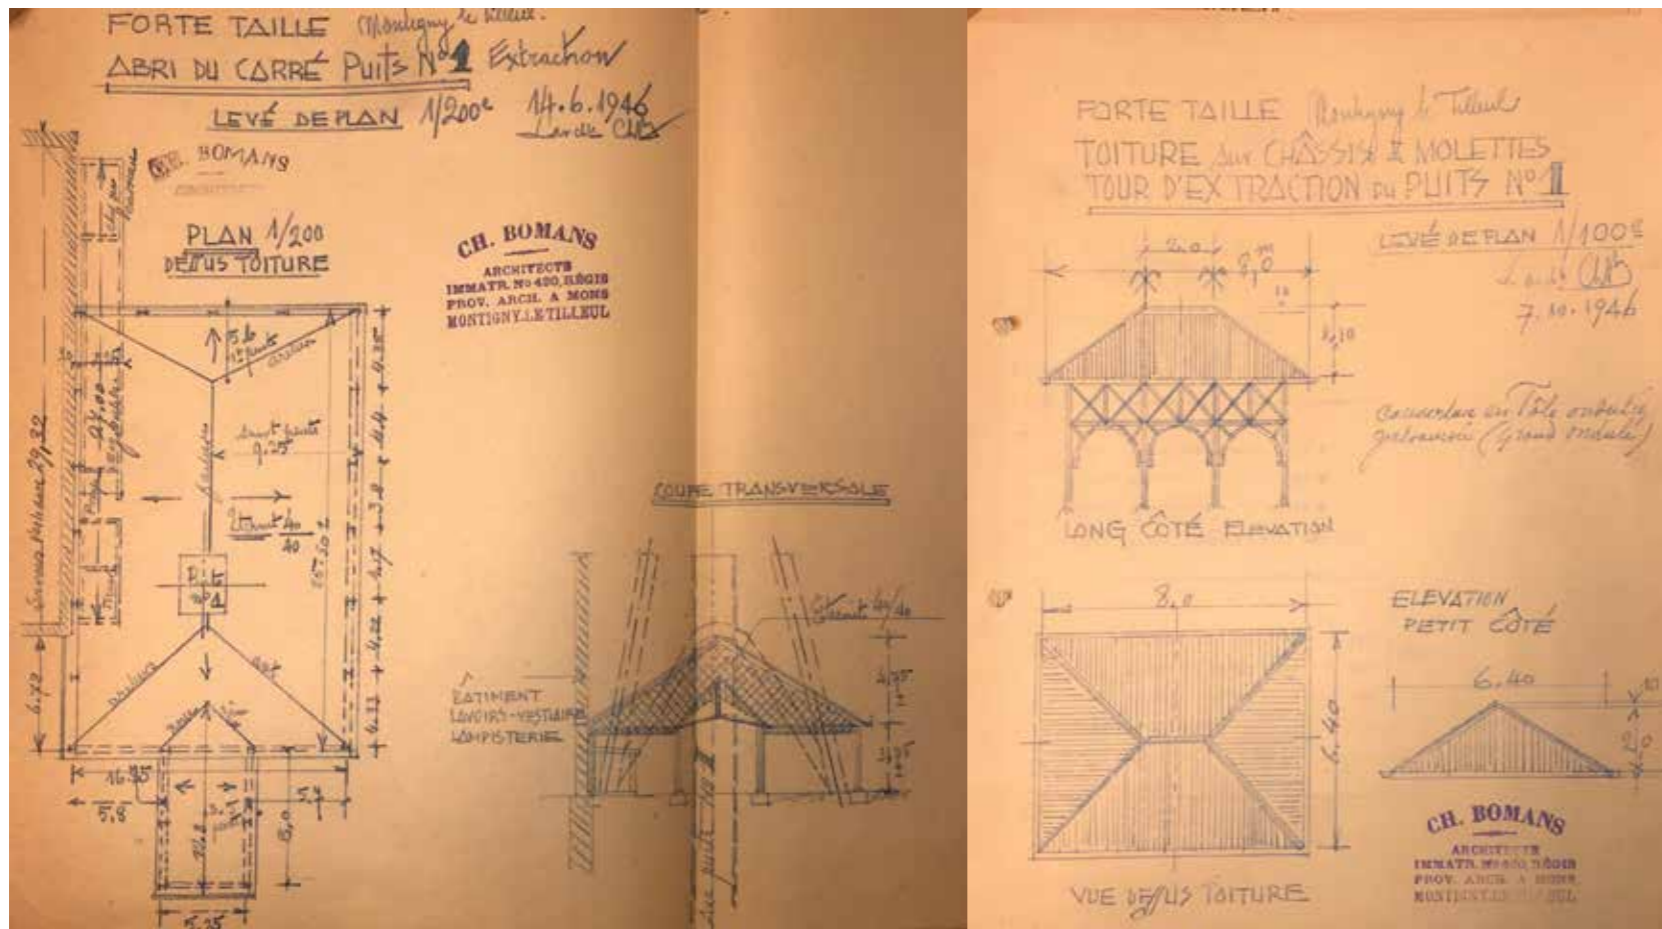 FORTE TAILLE Montigny le Tilleul.
ABRI DU CARRÉ Puits No 1 Extraction
LEVÉ DE PLAN 1/200e 14.6.1946
CH. BOMANS
ARCHITECTE
PLAN 1/200
DESSUS TOITURE
CH. BOMANS
ARCHITECTE
IMMATR. No 490, RÉGIS
PROV. ARCH. A MONS
MONTIGNY-LE-TILLEUL
5.6
arêtier
4.25
4.4
3.8
4.7
4.22
4.33
27.00
29,32
9.25
40
40
25.50
Puits
No 1
6.72
arêtier
16.95
5.8
8,0
5.25
COUPE TRANSVERSALE
40/40
BATIMENT
LAVOIRS-VESTIAIRE
LAMPISTERIE
Axe puits No 1
FORTE TAILLE Montigny le Tilleul
TOITURE sur CHÂSSIS à MOLETTES
TOUR D'EXTRACTION DU PUITS No 1
LEVÉ DE PLAN 1/100e
7.10.1946
2.0
8,0 m
couverture en Tôle ondulée
galvanisée (Grand ondulé)
LONG CÔTÉ ELEVATION
8,0
6.40
VUE DESSUS TOITURE
ELEVATION
PETIT CÔTÉ
6.40
CH. BOMANS
ARCHITECTE
IMMATR. No 490, RÉGIS
PROV. ARCH. A MONS
MONTIGNY-LE-TILLEUL